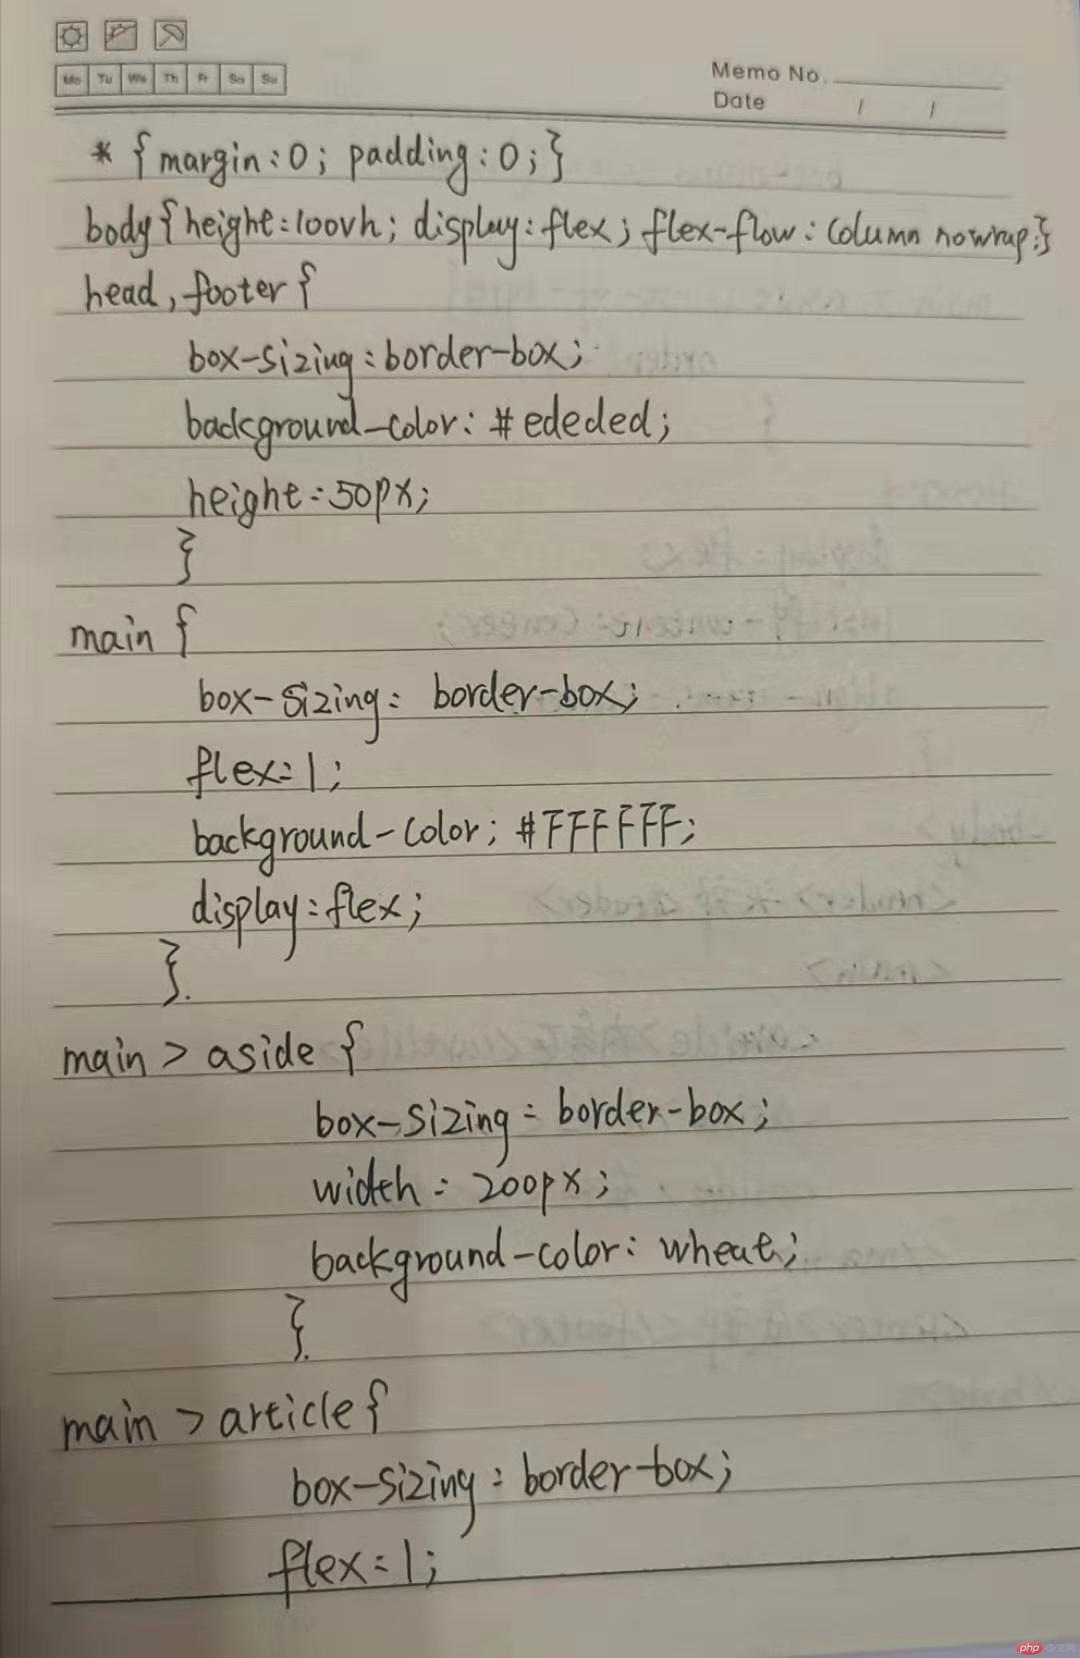 Mo Tu We Th Fr Sa Su
Memo No.
Date / /
* {margin:0; padding:0;}
body{height:100vh; display:flex; flex-flow:column nowrap;}
head, footer{
box-sizing:border-box;
background-color: #ededed;
height:50px;
}
main {
box-sizing: border-box;
flex:1;
background-color; #FFFFFF;
display:flex;
}.
main > aside {
box-sizing: border-box;
width: 200px;
background-color: wheat;
}.
main > article{
box-sizing: border-box;
flex:1;
php